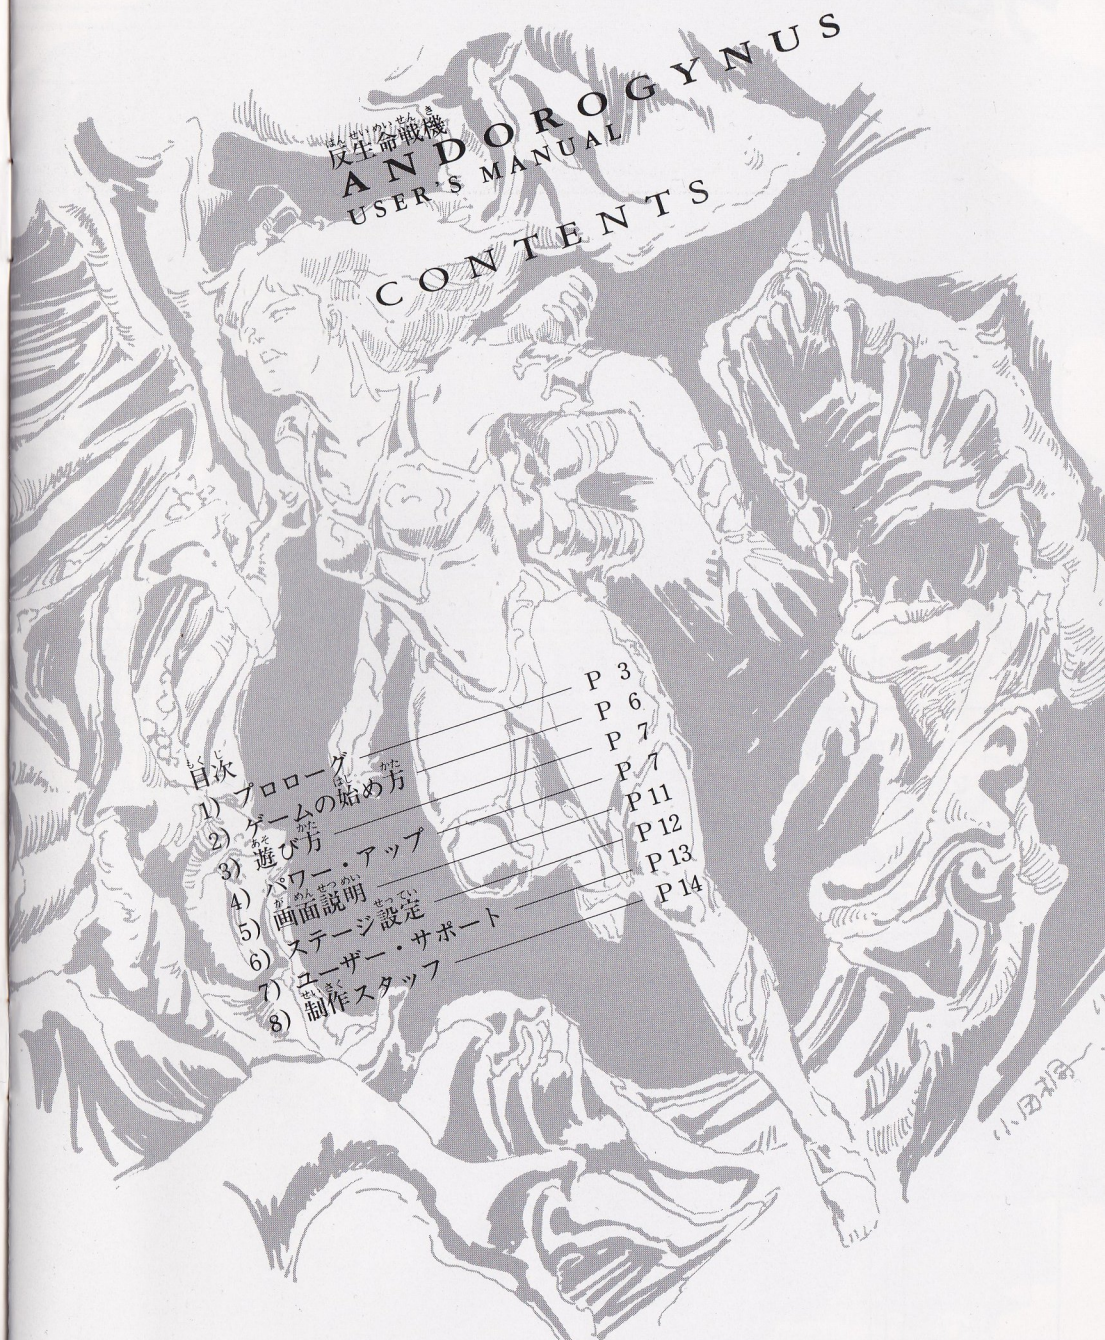 反生命戦機
ANDOROGYNUS
USER'S MANUAL
CONTENTS
目次
1) プロローグ P 3
2) ゲームの始め方 P 6
3) 遊び方 P 7
4) パワー・アップ P 7
5) 画面説明 P 11
6) ステージ設定 P 12
7) ユーザー・サポート P 13
8) 制作スタッフ P 14